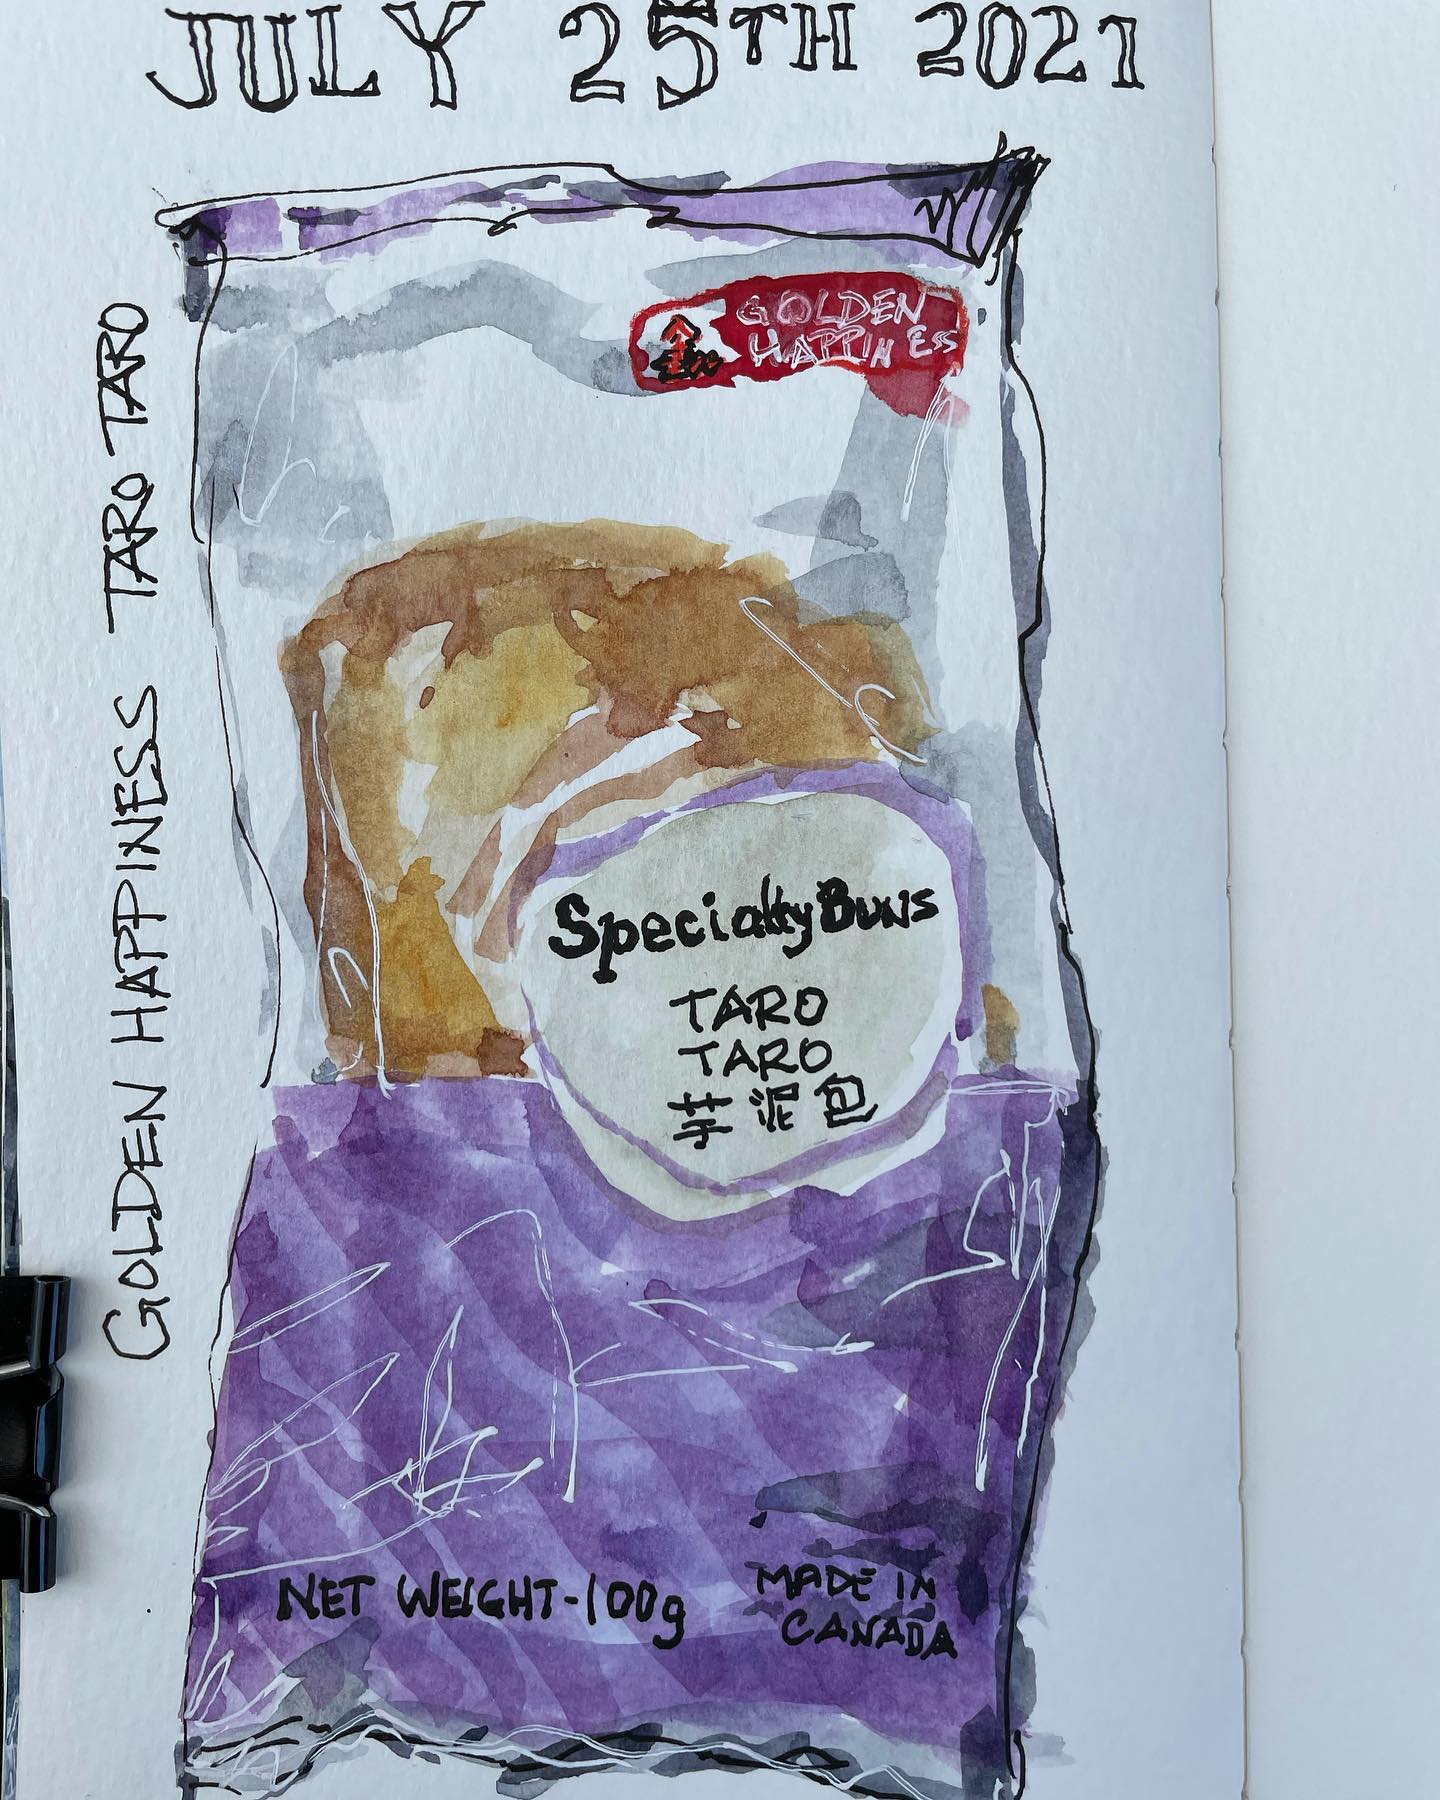 JULY 25TH 2021
GOLDEN HAPPINESS TARO TARO
GOLDEN
HAPPINESS
Specialty Buns
TARO
TARO
芋泥包
NET WEIGHT-100g
MADE IN
CANADA